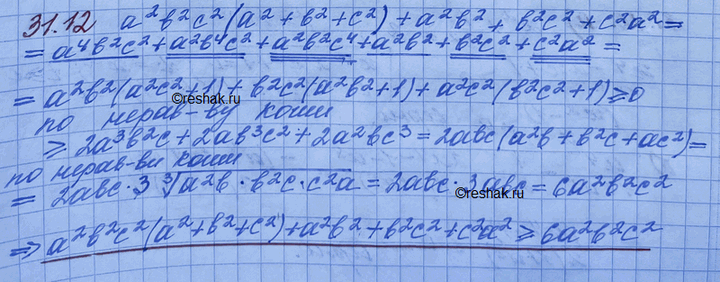 31.12 a²b²c²(a²+b²+c²)+a²b²+b²c²+c²a²=
=a⁴b²c²+a²b⁴c²+a²b²c⁴+a²b²+b²c²+c²a²=
=a²b²(a²c²+1)+b²c²(a²b²+1)+a²c²(b²c²+1)≥0
©reshak.ru
по нерав-ву Коши
≥2a³b²c+2ab³c²+2a²bc³=2abc(a²b+b²c+ac²)=
по нерав-ви Коши
=2abc·3∛a²b·b²c·c²a=2abc·3abc=6a²b²c²
©reshak.ru
⇒a²b²c²(a²+b²+c²)+a²b²+b²c²+c²a²≥6a²b²c²